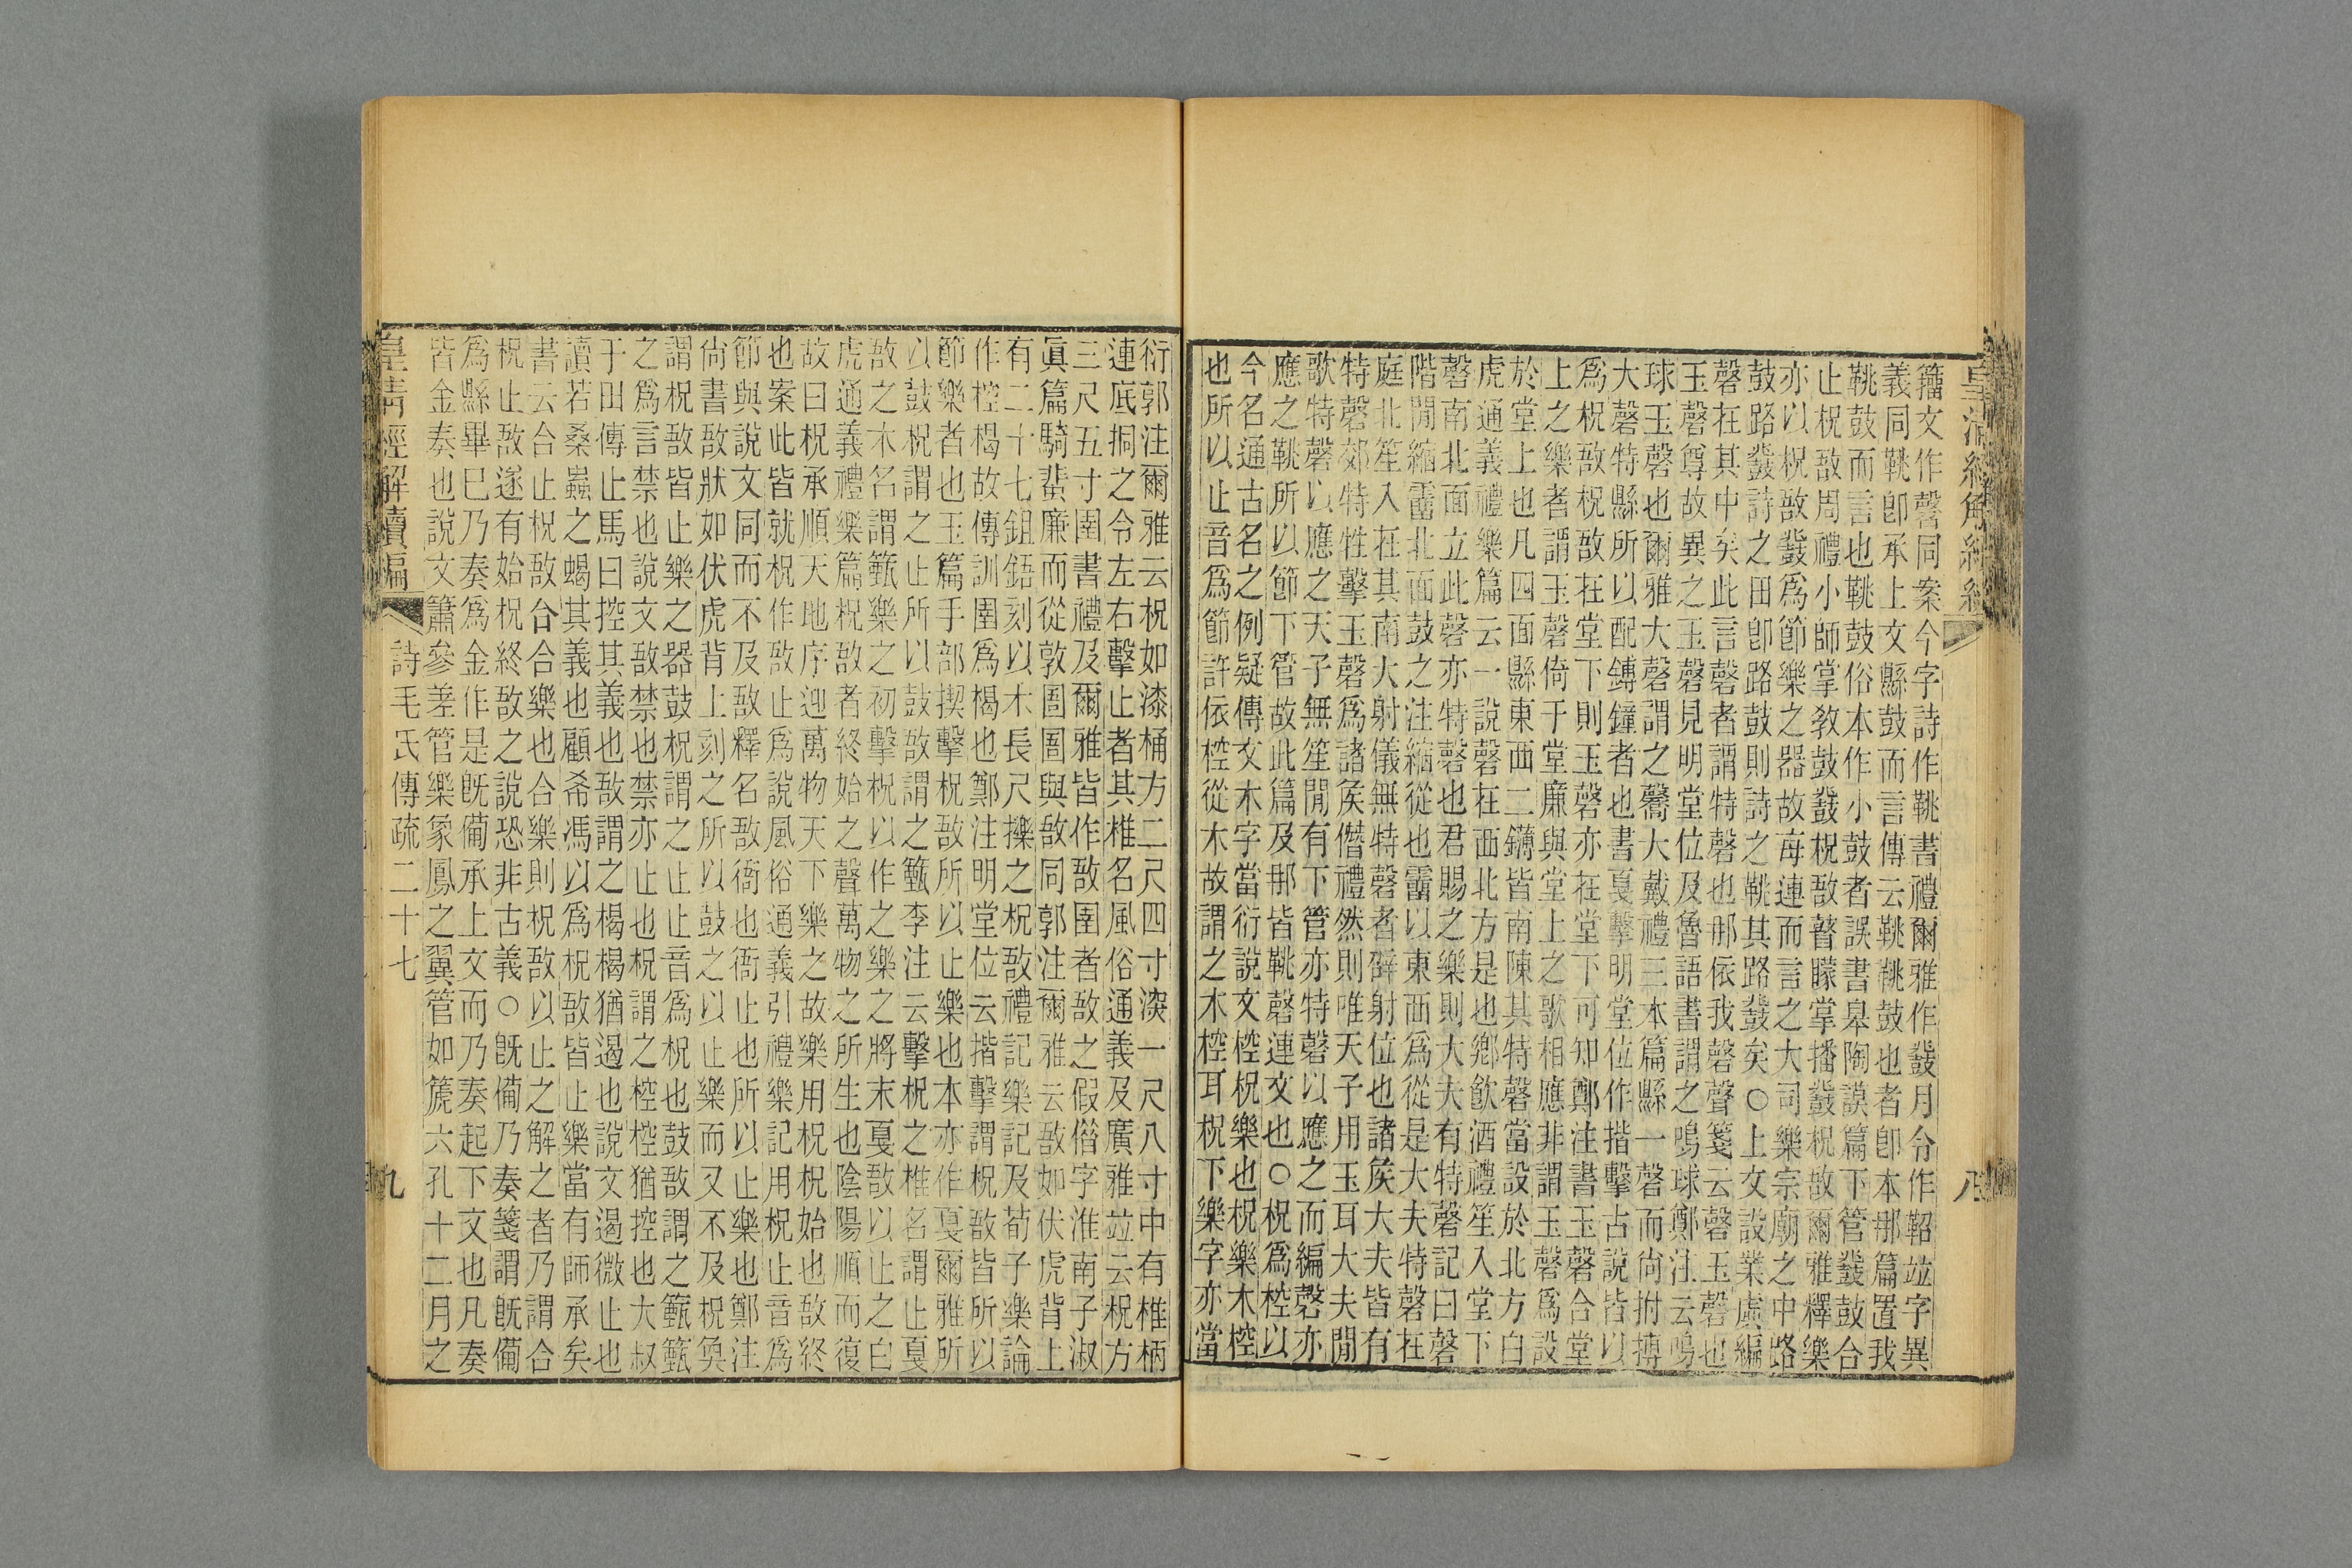 籒文作磬同案今字詩作鞉書禮爾雅作鼗月令作鞀竝字異
義同鞉卽承上文縣鼓而言傳云鞉鞉鼓也者卽本那篇置我
鞉鼓而言也鞉鼓俗本作小鼓者誤書皋陶謨篇下管鼗鼓合
止柷敔周禮小師掌敎鼓鼗柷敔瞽矇掌播鼗柷敔爾雅釋樂
亦以柷敔鼗爲節樂之器故每連而言之大司樂宗廟之中路
鼓路鼗詩之田卽路鼓則詩之鞉其路鼗矣○上文設業虡編
磬在其中矣此言磬者謂特磬也那依我磬聲箋云磬玉磬也
玉磬尊故異之玉磬見明堂位及魯語書謂之鳴球鄭注云鳴
球玉磬也爾雅大磬謂之毊大戴禮三本篇縣一磬而尚拊搏
大磬特縣所以配鎛鐘者也書戛擊明堂位作揩擊古說皆以
爲柷敔柷敔在堂下則玉磬亦在堂下可知鄭注書玉磬合堂
上之樂者謂玉磬倚于堂廉與堂上之歌相應非謂玉磬爲設
於堂上也凡四面縣東西二鏄皆南陳其特磬當設於北方白
虎通義禮樂篇云一說磬在西北方是也鄉飮酒禮笙入堂下
磬南北面立此磬亦特磬也君賜之樂則大夫有特磬記曰磬
階閒縮霤北面鼓之注縮從也霤以東西爲從是大夫特磬在
庭北笙入在其南大射儀無特磬者辟射位也諸矦大夫皆有
特磬郊特牲擊玉磬爲諸矦僭禮然則唯天子用玉耳大夫閒
歌特磬以應之天子無笙閒有下管亦特磬以應之而編磬亦
應之鞉所以節下管故此篇及那皆鞉磬連文也○柷爲椌以
今名通古名之例疑傳文木字當衍說文椌柷樂也柷樂木椌
也所以止音爲節許依椌從木故謂之木椌耳柷下樂字亦當
皇清經解續編
八
衍郭注爾雅云柷如漆桶方二尺四寸深一尺八寸中有椎柄
連底挏之令左右擊止者其椎名風俗通義及廣雅竝云柷方
三尺五寸圉書禮及爾雅皆作敔圉者敔之假借字淮南子淑
眞篇騎蜚廉而從敦圄圄與敔同郭注爾雅云敔如伏虎背上
有二十七鉏鋙刻以木長尺擽之柷敔禮記樂記及荀子樂論
作椌楬故傳訓圉爲楬也鄭注明堂位云揩擊謂柷敔皆所以
節樂者也玉篇手部揳擊柷敔所以止樂也本亦作戛爾雅所
以鼓柷謂之止所以鼓敔謂之籈李注云擊柷之椎名謂止戛
敔之木名謂籈樂之初擊柷以作之樂之將末戛敔以止之白
虎通義禮樂篇柷敔者終始之聲萬物之所生也陰陽順而復
故曰柷承順天地序迎萬物天下樂之故樂用柷柷始也敔終
也案此皆就柷作敔止爲說風俗通義引禮樂記用柷止音爲
節與說文同而不及敔釋名敔衙也衙止也所以止樂也鄭注
尚書敔狀如伏虎背上刻之所以鼓之以止樂而又不及柷奐
謂柷敔皆止樂之器鼓柷謂之止止音爲柷也鼓敔謂之籈籈
之爲言禁也說文敔禁也禁亦止也柷謂之椌椌猶控也大叔
于田傳止馬曰控其義也敔謂之楬楬猶遏也說文遏微止也
讀若桑蟲之蝎其義也顧希馮以爲柷敔皆止樂當有師承矣
書云合止柷敔合合樂也合樂則柷敔以止之解之者乃謂合
柷止敔遂有始柷終敔之說恐非古義○旣備乃奏箋謂旣備
爲縣畢巳乃奏爲金作是旣備承上文而乃奏起下文也凡奏
皆金奏也說文簫參差管樂象鳳之翼管如篪六孔十二月之
皇淸經解續編
詩毛氏傳疏二十七
九